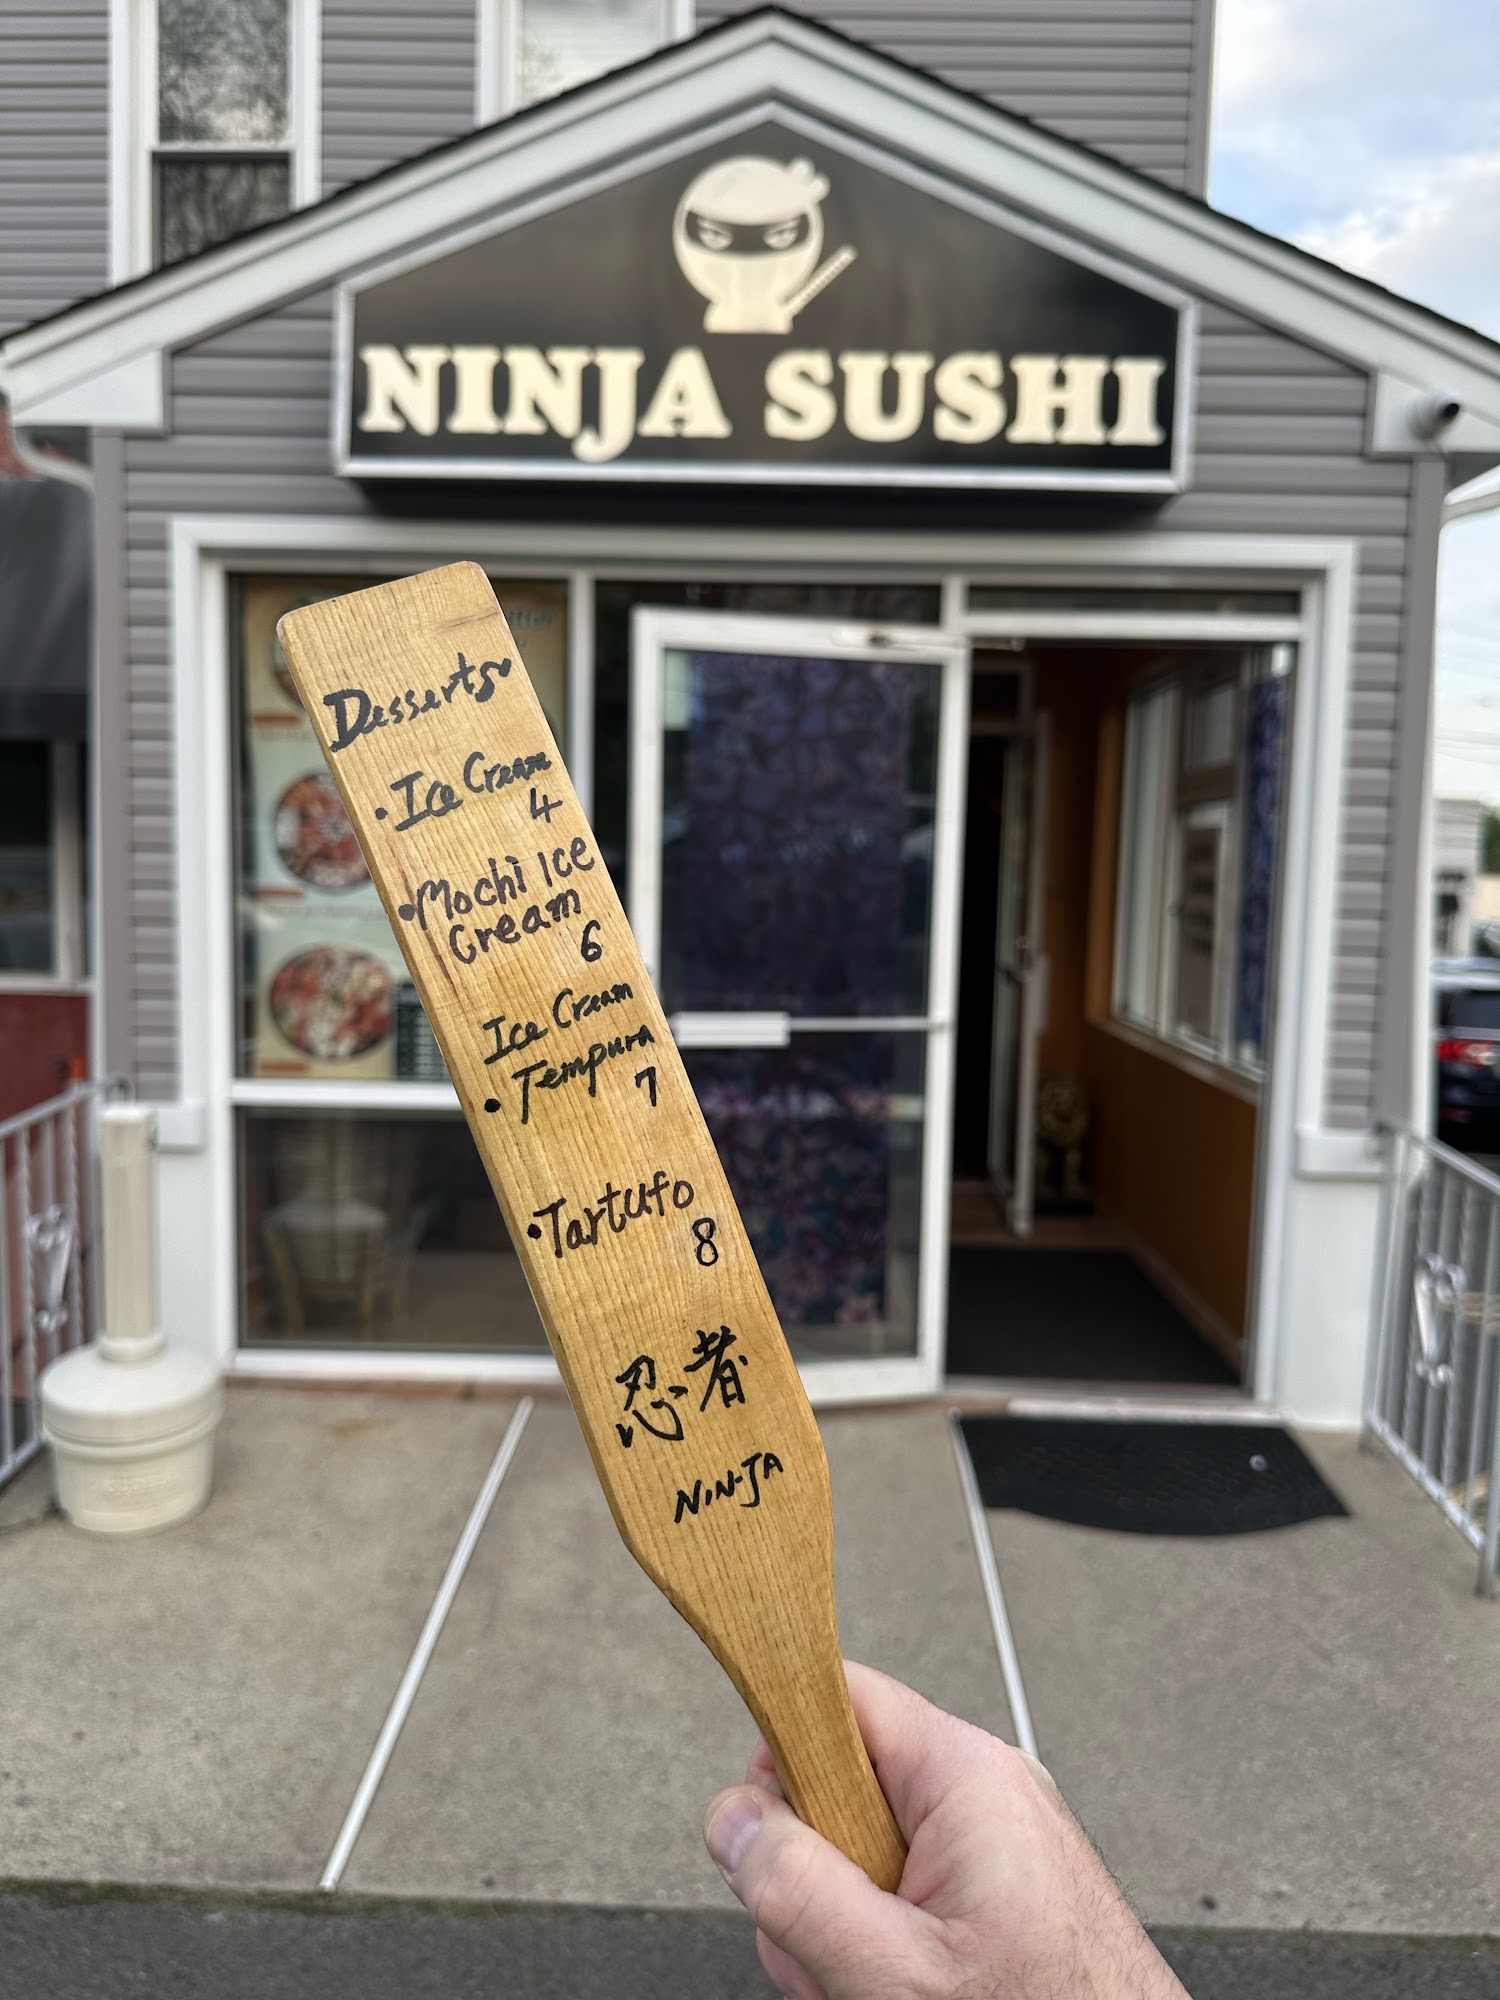 NINJA SUSHI
Desserts
• Ice Cream
4
• Mochi Ice
Cream
6
Ice Cream
• Tempura
7
• Tartufo
8
忍者
NIN-JA